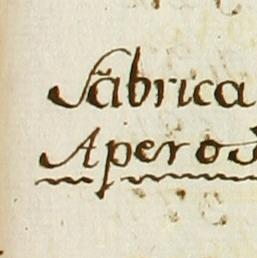 Fabrica
Aperos